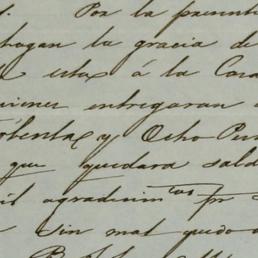 Por la presente
hagan la gracia de
estas á la Casa
quienes entregaran
Ochenta y Ocho Pesos
que quedara sald
agradecimtos pr
Sin mas quedo